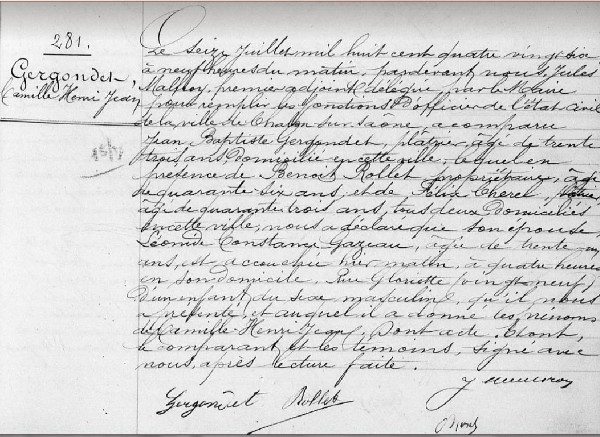 281.
Gergondet,
Camille Henri Jean
Le seize Juillet mil huit cent quatre vingt six
à neuf heures du matin, pardevant nous, Jules
premier adjoint délégué par le Maire
pour remplir les fonctions d'officier de l'état civil
de la ville de Chalon sur Saône, a comparu
Jean Baptiste Gergondet, plâtrier, âgé de trente
trois ans domicilié en cette ville, lequel en
présence de Benoit Rollet propriétaire, âgé
de quarante six ans, et de Félix Cherel,
âgé de quarante trois ans, tous deux domiciliés
en cette ville, nous a déclaré que son épouse,
Léonide Constance Gazeau, âgée de trente
ans, est accouchée hier matin, à quatre heures
en son domicile, Rue Gloriette (vingt-neuf)
d'un enfant du sexe masculin, qu'il nous
a présenté et auquel il a donné les prénoms
de Camille Henri Jean, Dont acte. Et ont,
le comparant et les témoins, signé avec
nous, après lecture faite.
Gergondet Rollet